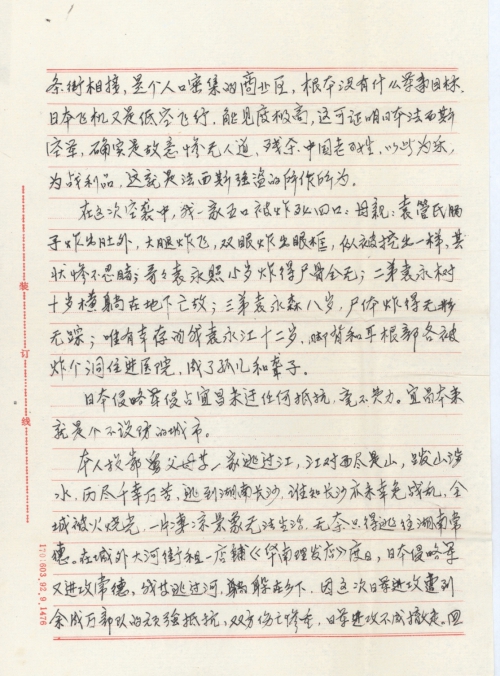 条街相接，是个人口密集的商业区，根本没有什么军事目标。
日本飞机又是低空飞行，能见度极高，这可证明日本法西斯
空军，确实是故意惨无人道，残杀中国老百姓，以此为乐，
为战利品，这就是法西斯强盗的所作所为。
在这次空袭中，我一家五口被炸死四口：母亲：袁管氏肠
子炸出肚外，大腿炸飞，双眼炸出眼框，似被挖出一样，其
状惨不忍睹；哥々袁永照 小岁炸得尸骨全无；二弟袁永树
十岁横躺在地下亡故；三弟袁永森八岁，尸体炸得无形
无踪；唯有幸存的我袁永江十二岁，脚背和耳根部各被
炸个洞住进医院，成了孤儿和聋子。
日本侵略军侵占宜昌未迂任何抵抗，毫不费力。宜昌本来
就是个不设防的城市。
本人投靠 父母 一家逃过江，江对面尽是山，跋山涉
水，历尽千辛万苦，逃到湖南长沙，谁知长沙亦未幸免战乱，全
城被火烧光，一片凄凉景象无法生活，无奈只得逃往湖南常
德。在城外大河街租一店铺《华南理发店》度日，日本侵略军
又进攻常德，我等逃过河，躲在乡下，因这次日军进攻遭到
余成万部队的顽强抵抗，双方伤亡惨重，日军进攻不成撤走。四
装
订
线
170(603.92.9.1476